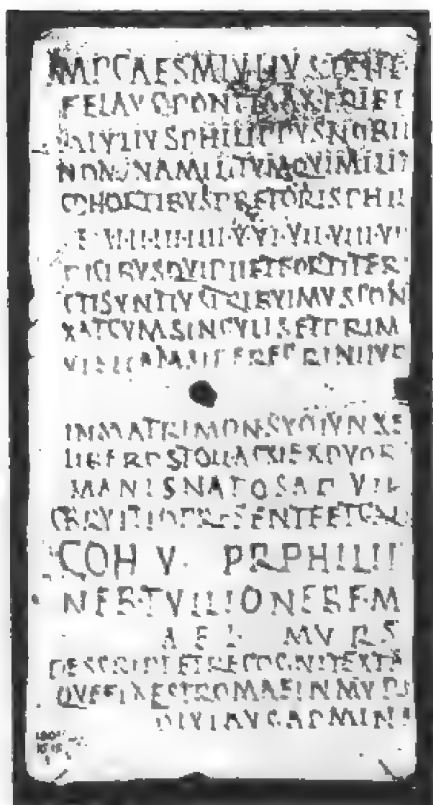 IMP CAES M IVLIVS PHILI
FEL AVG PONT MAX TRIB
M IVLIVS PHILIPPVS NOBIL
NOMINA MILITVM QVI MILIT
COHORTIBVS PRETORIS PHIL
II·III·IIII·V·VI·VII·VIII·VI
DICIBVS QVI PIE ET FORTITER
CTI SVNT IVS TRIBVIMVS CON
XAT CVM SINGVLIS ET PRIM
PEREGRINI IVR
IN MATRIMON SVO IVNXE
LIBEROS TOLLA SI EX DVOB
MANIS NATOS A D VII
COH V· PR PHILIP
NEBTVILIONE REM
AEL MVRS
DESCRIPT ET RECOGNIT EX TA
QVE FIXA EST ROMAE IN MVR
DIVI AVG AD MINE